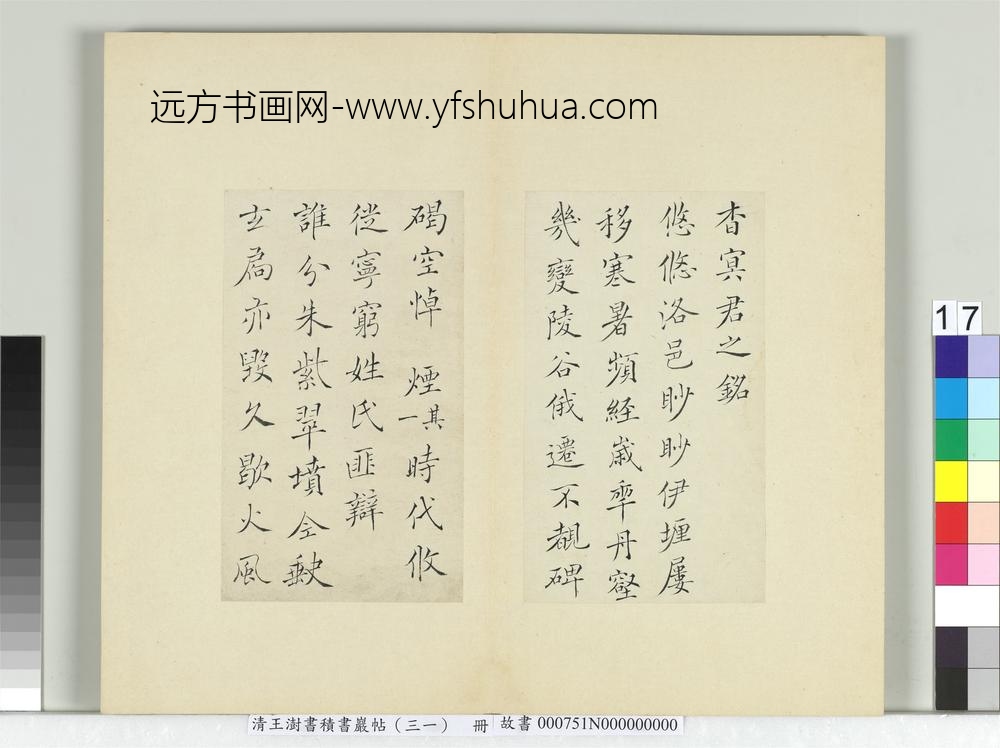 远方书画网-www.yfshuhua.com
杳冥君之銘
悠悠洛邑眇眇伊壥屢
移寒暑頻經歲年丹壑
幾變陵谷俄遷不覩碑
碣空悼煙其一時代攸
徙寧窮姓氏匪辯
誰分朱紫翠墳全缺
玄扃亦毀久歇火風
17
清王澍書積書巖帖（三一） 冊
故書 000751N000000000